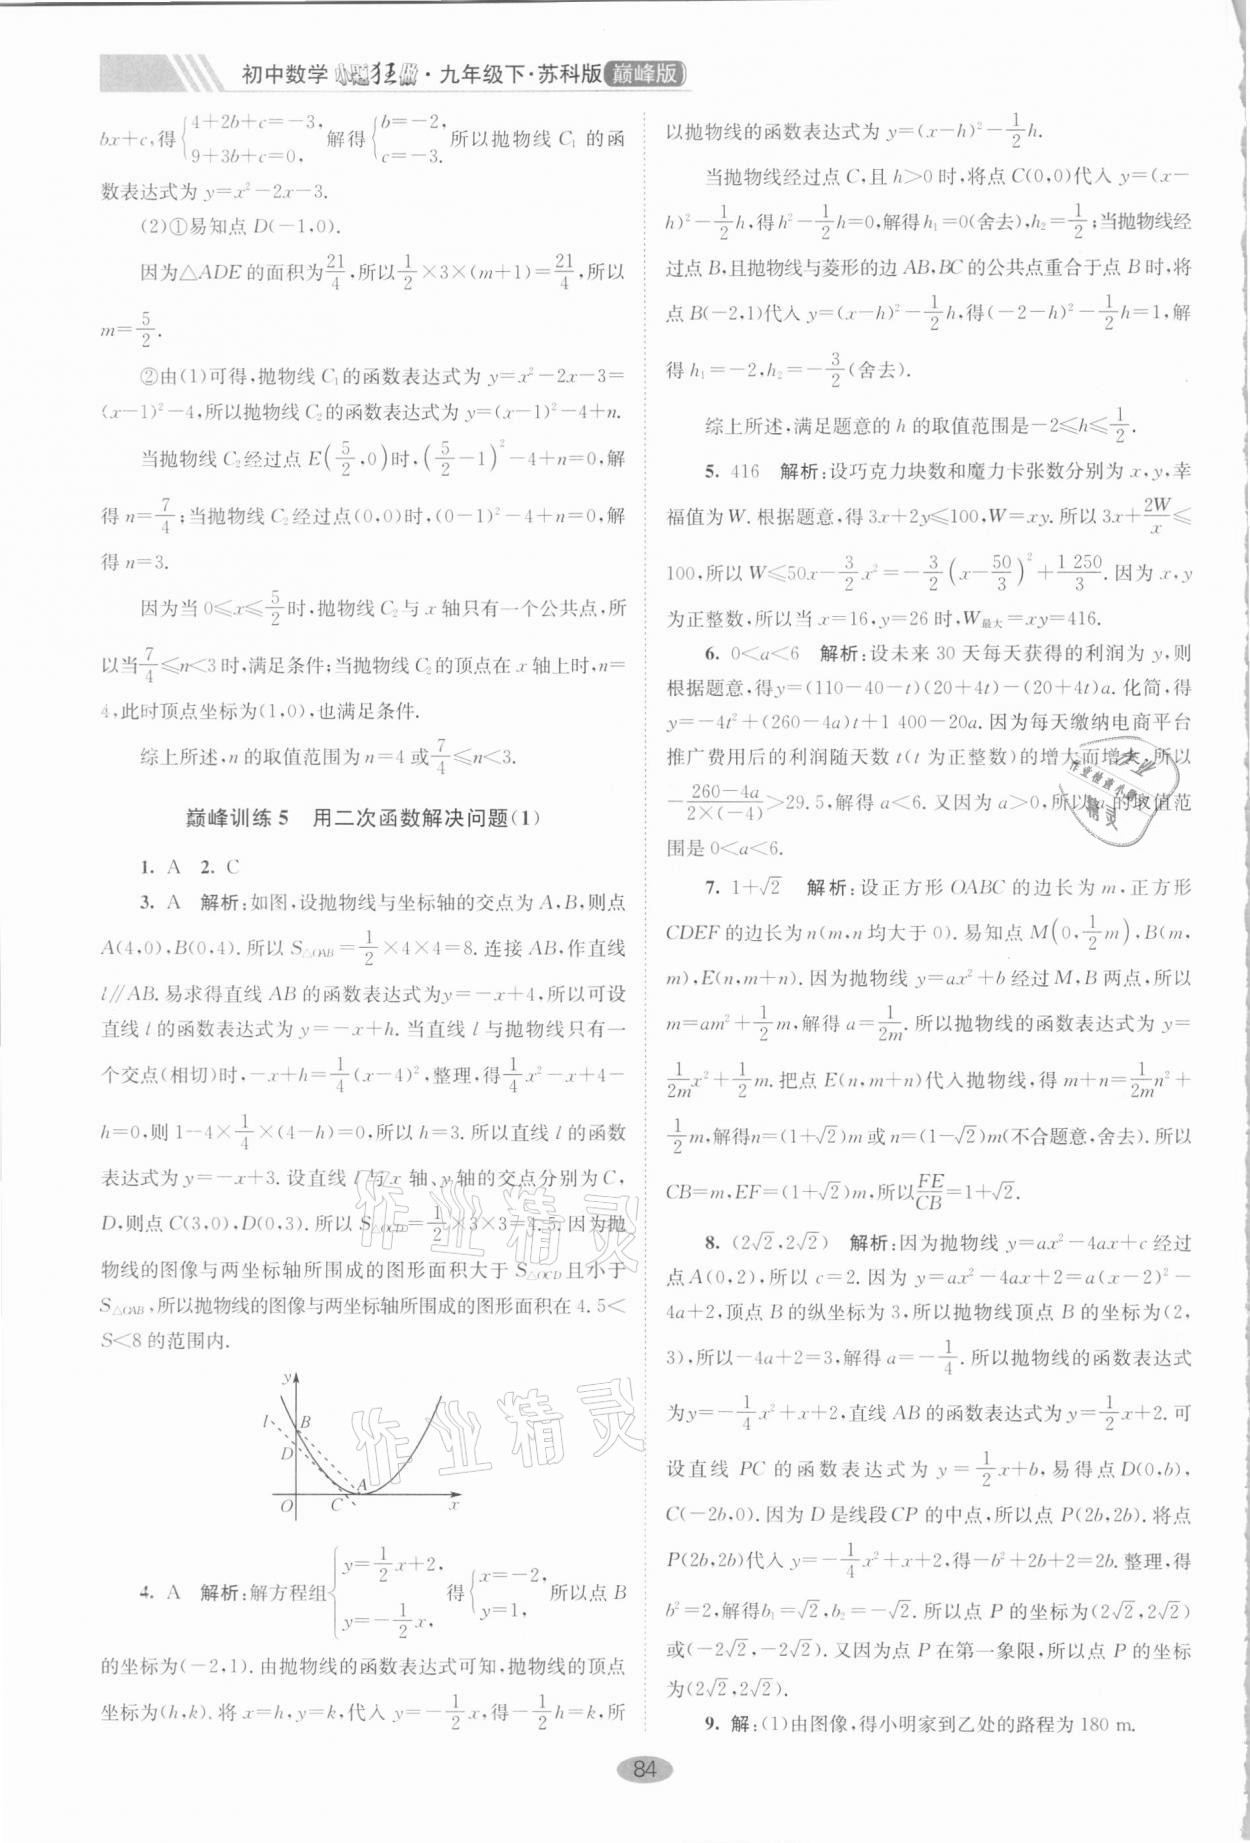 初中数学 小题狂做·九年级下·苏科版 巅峰版
bx+c,得{4+2b+c=-3, 9+3b+c=0, 解得{b=-2, c=-3. 所以抛物线 C₁ 的函
数表达式为 y=x²-2x-3.
(2)①易知点 D(-1,0).
因为△ADE 的面积为21/4,所以1/2×3×(m+1)=21/4,所以
m=5/2.
②由(1)可得,抛物线 C₁的函数表达式为 y=x²-2x-3=
(x-1)²-4,所以抛物线 C₂的函数表达式为 y=(x-1)²-4+n.
当抛物线 C₂经过点 E(5/2,0)时,(5/2-1)²-4+n=0,解
得 n=7/4;当抛物线 C₂经过点(0,0)时,(0-1)²-4+n=0,解
得 n=3.
因为当 0≤x≤5/2时,抛物线 C₂与 x 轴只有一个公共点,所
以当7/4≤n<3时,满足条件;当抛物线 C₂的顶点在 x 轴上时,n=
4,此时顶点坐标为(1,0),也满足条件.
综上所述,n 的取值范围为 n=4 或7/4≤n<3.
巅峰训练 5 用二次函数解决问题(1)
1. A 2. C
3. A 解析:如图,设抛物线与坐标轴的交点为 A,B,则点
A(4,0),B(0,4).所以 S△OAB=1/2×4×4=8.连接 AB,作直线
l∥AB.易求得直线 AB 的函数表达式为y=-x+4,所以可设
直线 l 的函数表达式为 y=-x+h.当直线 l 与抛物线只有一
个交点(相切)时,-x+h=1/4(x-4)²,整理,得1/4x²-x+4-
h=0,则 1-4×1/4×(4-h)=0,所以 h=3.所以直线 l 的函数
表达式为 y=-x+3.设直线 l 与 x 轴、y 轴的交点分别为 C,
D,则点 C(3,0),D(0,3).所以 S△OCD=1/2×3×3=4.5.因为抛
物线的图像与两坐标轴所围成的图形面积大于 S△OCD且小于
S△OAB,所以抛物线的图像与两坐标轴所围成的图形面积在 4.5<
S<8 的范围内.
y
l
B
D
O
C
A
x
4. A 解析:解方程组{y=1/2x+2, y=-1/2x, 得{x=-2, y=1, 所以点 B
的坐标为(-2,1).由抛物线的函数表达式可知,抛物线的顶点
坐标为(h,k).将 x=h,y=k,代入 y=-1/2x,得-1/2h=k,所
以抛物线的函数表达式为 y=(x-h)²-1/2h.
当抛物线经过点 C,且 h>0 时,将点 C(0,0)代入 y=(x-
h)²-1/2h,得 h²-1/2h=0,解得 h₁=0(舍去),h₂=1/2;当抛物线经
过点 B,且抛物线与菱形的边 AB,BC 的公共点重合于点 B 时,将
点 B(-2,1)代入 y=(x-h)²-1/2h,得(-2-h)²-1/2h=1,解
得 h₁=-2,h₂=-3/2(舍去).
综上所述,满足题意的 h 的取值范围是-2≤h≤1/2.
5. 416 解析:设巧克力块数和魔力卡张数分别为 x,y,幸
福值为 W.根据题意,得 3x+2y≤100,W=xy.所以 3x+2W/x≤
100,所以 W≤50x-3/2x²=-3/2(x-50/3)²+1 250/3.因为 x,y
为正整数,所以当 x=16,y=26 时,W最大=xy=416.
6. 0<a<6 解析:设未来 30 天每天获得的利润为 y,则
根据题意,得y=(110-40-t)(20+4t)-(20+4t)a.化简,得
y=-4t²+(260-4a)t+1 400-20a.因为每天缴纳电商平台
推广费用后的利润随天数 t(t 为正整数)的增大而增大,所以
-260-4a/2×(-4)>29.5,解得 a<6.又因为 a>0,所以 a 的取值范
围是 0<a<6.
7. 1+√2 解析:设正方形 OABC 的边长为 m,正方形
CDEF 的边长为 n(m,n 均大于 0).易知点 M(0,1/2m),B(m,
m),E(n,m+n).因为抛物线 y=ax²+b 经过 M,B 两点,所以
m=am²+1/2m,解得 a=1/2m.所以抛物线的函数表达式为 y=
1/2mx²+1/2m.把点 E(n,m+n)代入抛物线,得 m+n=1/2mn²+
1/2m,解得n=(1+√2)m 或 n=(1-√2)m(不合题意,舍去).所以
CB=m,EF=(1+√2)m,所以FE/CB=1+√2.
8. (2√2,2√2) 解析:因为抛物线 y=ax²-4ax+c 经过
点 A(0,2),所以 c=2.因为 y=ax²-4ax+2=a(x-2)²-
4a+2,顶点 B 的纵坐标为 3,所以抛物线顶点 B 的坐标为(2,
3),所以-4a+2=3,解得 a=-1/4.所以抛物线的函数表达式
为y=-1/4x²+x+2,直线 AB 的函数表达式为 y=1/2x+2.可
设直线 PC 的函数表达式为 y=1/2x+b,易得点D(0,b),
C(-2b,0).因为 D 是线段 CP 的中点,所以点 P(2b,2b).将点
P(2b,2b)代入 y=-1/4x²+x+2,得-b²+2b+2=2b.整理,得
b²=2,解得b₁=√2,b₂=-√2.所以点 P 的坐标为(2√2,2√2)
或(-2√2,-2√2).又因为点 P 在第一象限,所以点 P 的坐标
为(2√2,2√2).
9. 解:(1)由图像,得小明家到乙处的路程为 180 m.
84
作业精灵
作业精灵
作业
作业检查小助手
精灵